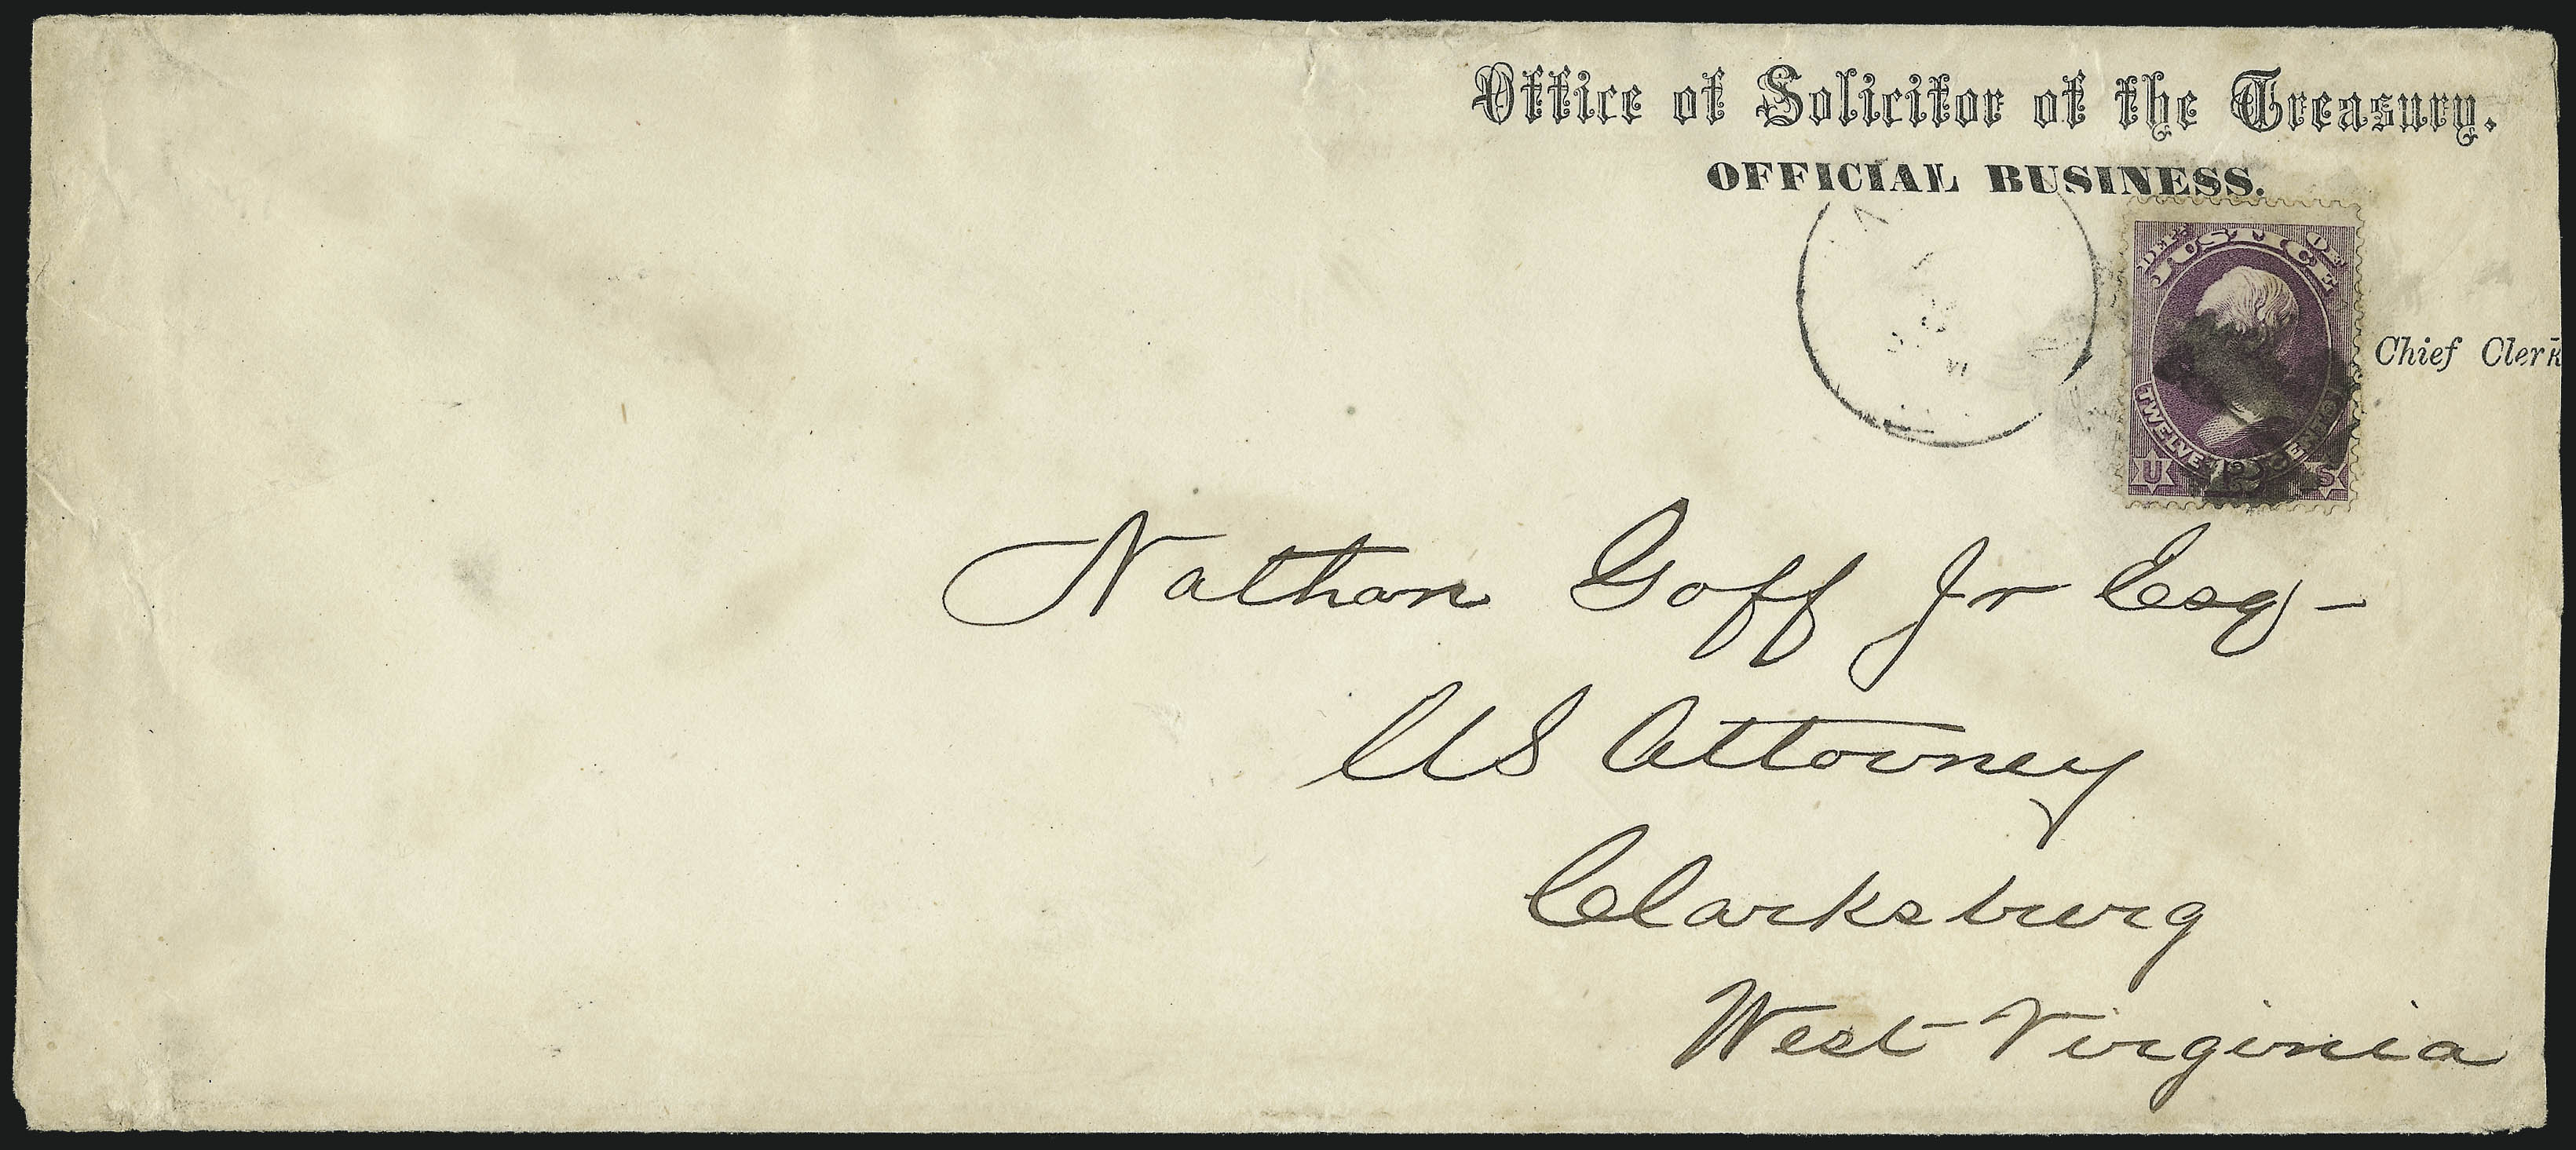 Office of Solicitor of the Treasury.
OFFICIAL BUSINESS.
DEPT. OF
JUSTICE
TWELVE 12 CENTS
U S
Chief Clerk
Nathan Goff Jr Esq-
US Attorney
Clarksburg
West Virginia